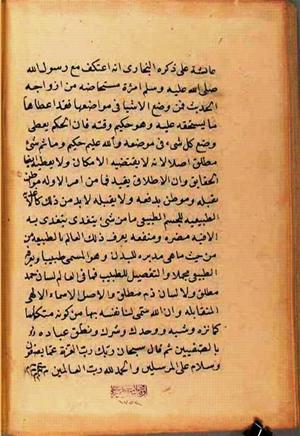 عائشة على ذكره البخارى انه اعتكف مع رسول الله
صلى الله عليه وسلم امرة مستحاضة من ازواجه
الحديث فمن وضع الاشيا فى مواضعها فقد اعطاها
ما يستحقه عليه وهو حكيم وقته فان الحكم يعطى
وضع كل شىء فى موضعه والله عليم حكيم وما ثم شىء
مطلق اصلا لانه لا يقتضيه الامكان ولا يعطيه
الحقايق وان الاطلاق تقييد فما من امر الا وله موطن
يقبله وموطن يدفعه ولا يقبله لا بد من ذلك كالاغذية
الطبيعيه للجسم الطبيعى ما من شىء يتغذى به الا
فيه مضرة ومنفعه يعرف ذلك العالم بالطبيعه من
من حيث ما هى مدبره للبدن وهو المسمى طبيبا ويعرفه
الطبيعى مجملا والتفصيل للطبيب فما فى العالم لسان حمد
مطلق ولا لسان ذم مطلق والاصل الاسماء الالهى
المتقابله وان الله سمى لنا نفسه بها من كونه متكلما
كما نزه وشبه ووحد وشرك ونطق عباده
بالصفتين ثم قال سبحان ربك رب العزة عما يصفون
وسلام على المرسلين والحمد لله رب العالمين